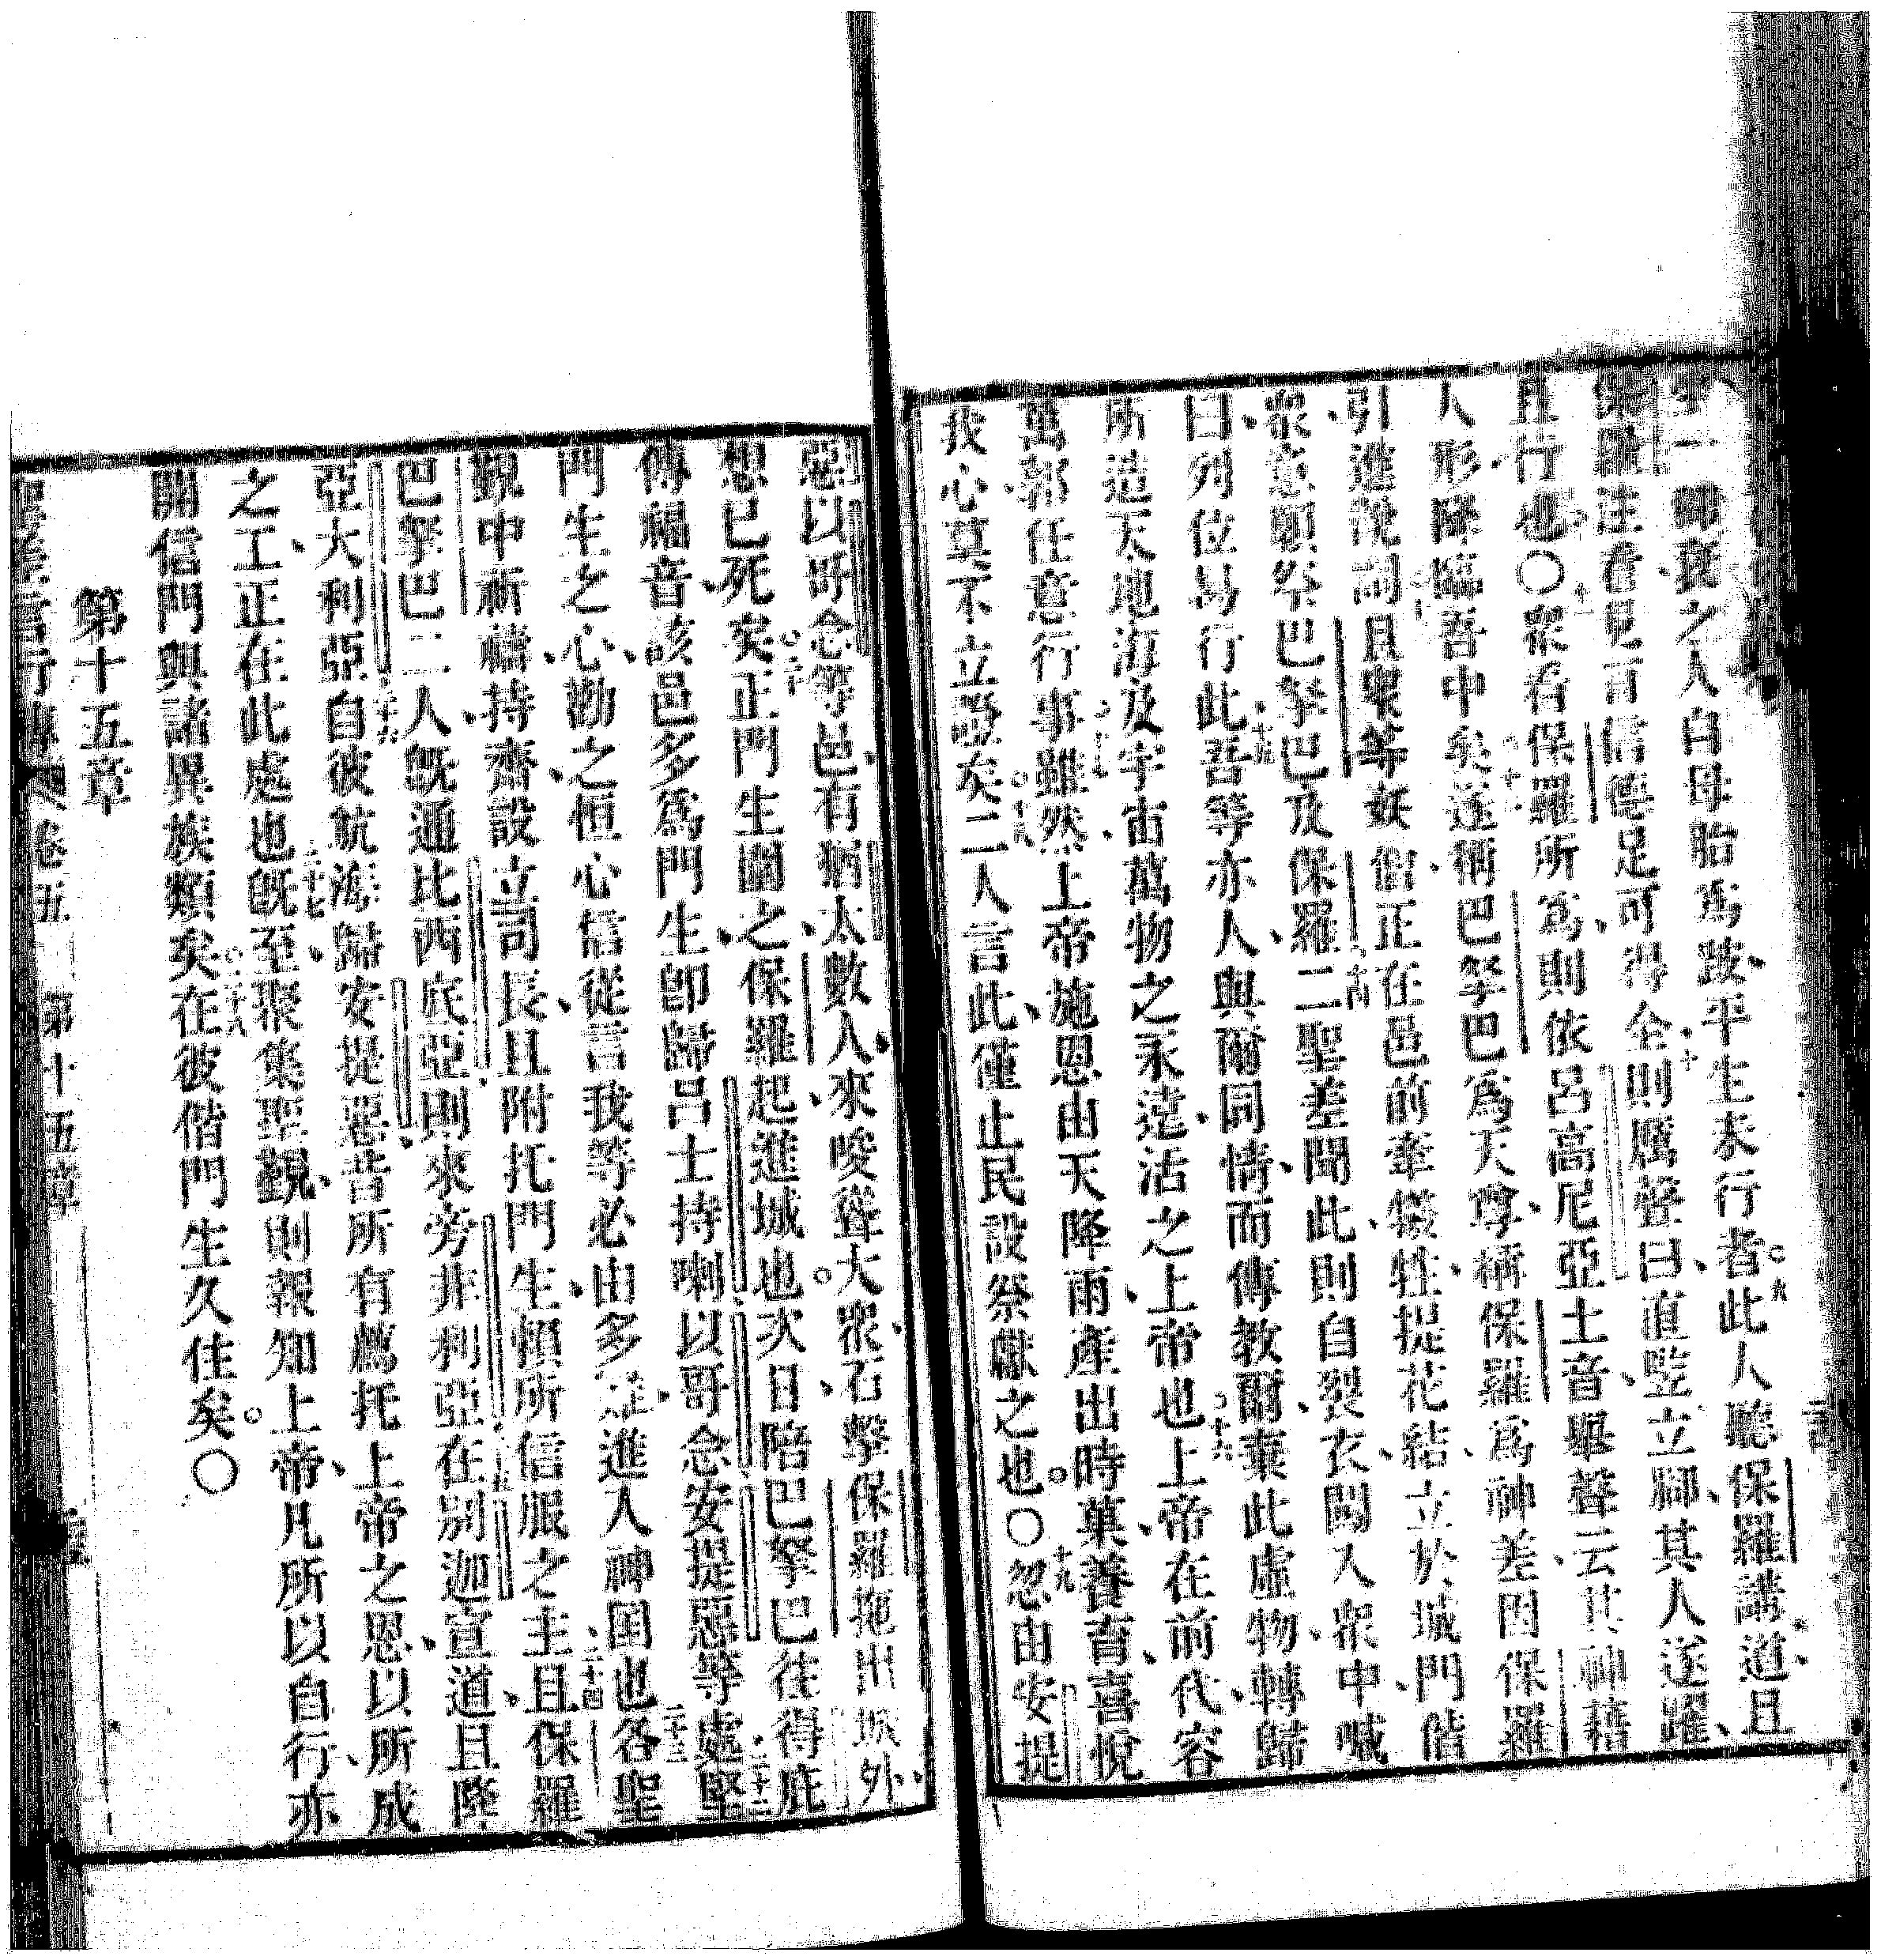 坐一脚衰之人自母胎爲跛平生未行者此人聽保羅講道且
保羅注看見百信德足可得全則厲聲曰直竪立腳其人遂躍
且行也〇眾看保羅所爲則依呂高尼亞土音舉聲云其神藉
人形降臨吾中矣遂稱巴拏巴爲天尊稱保羅爲神差因保羅
引進說詞且眾等妖侶正在邑前牽犧牲提花結立於城門偕
眾意願祭巴拏巴及保羅二聖差聞此則自裂衣闖入眾中喊
曰列位曷行此吾等亦人與爾同情而傳教爾棄此虛物轉歸
所造天地海及宇宙萬物之永遠活之上帝也上帝在前代容
萬郭任意行事雖然上帝施恩由天降雨產出時菓養育喜悅
我心莫不立證矣二人言此僅止民設祭獻之也〇忽由安提
惡以哥念等邑有猶太數人來唆聳大眾石擊保羅拖出城外
想已死矣正門生圍之保羅起進城也次日陪巴拏巴往得庇
傳福音該邑多爲門生卽歸呂士持喇以哥念安提惡等處堅
門生之心勸之恒心信從言我等必由多難進入神囯也各聖
觀中祈禱持齋設立司長且附托門生賴所信服之主且保羅
巴拏巴二人旣通比西底亞則來旁非利亞在別迦宣道且降
亞大利亞自彼航海歸安提惡昔所有薦托上帝之恩以所成
之工正在此處也旣至聚集聖觀則報知上帝凡所以自行亦
開信門與諸異族類矣在彼偕門生久住矣〇
第十五章
聖差言行傳 卷五 第十五章